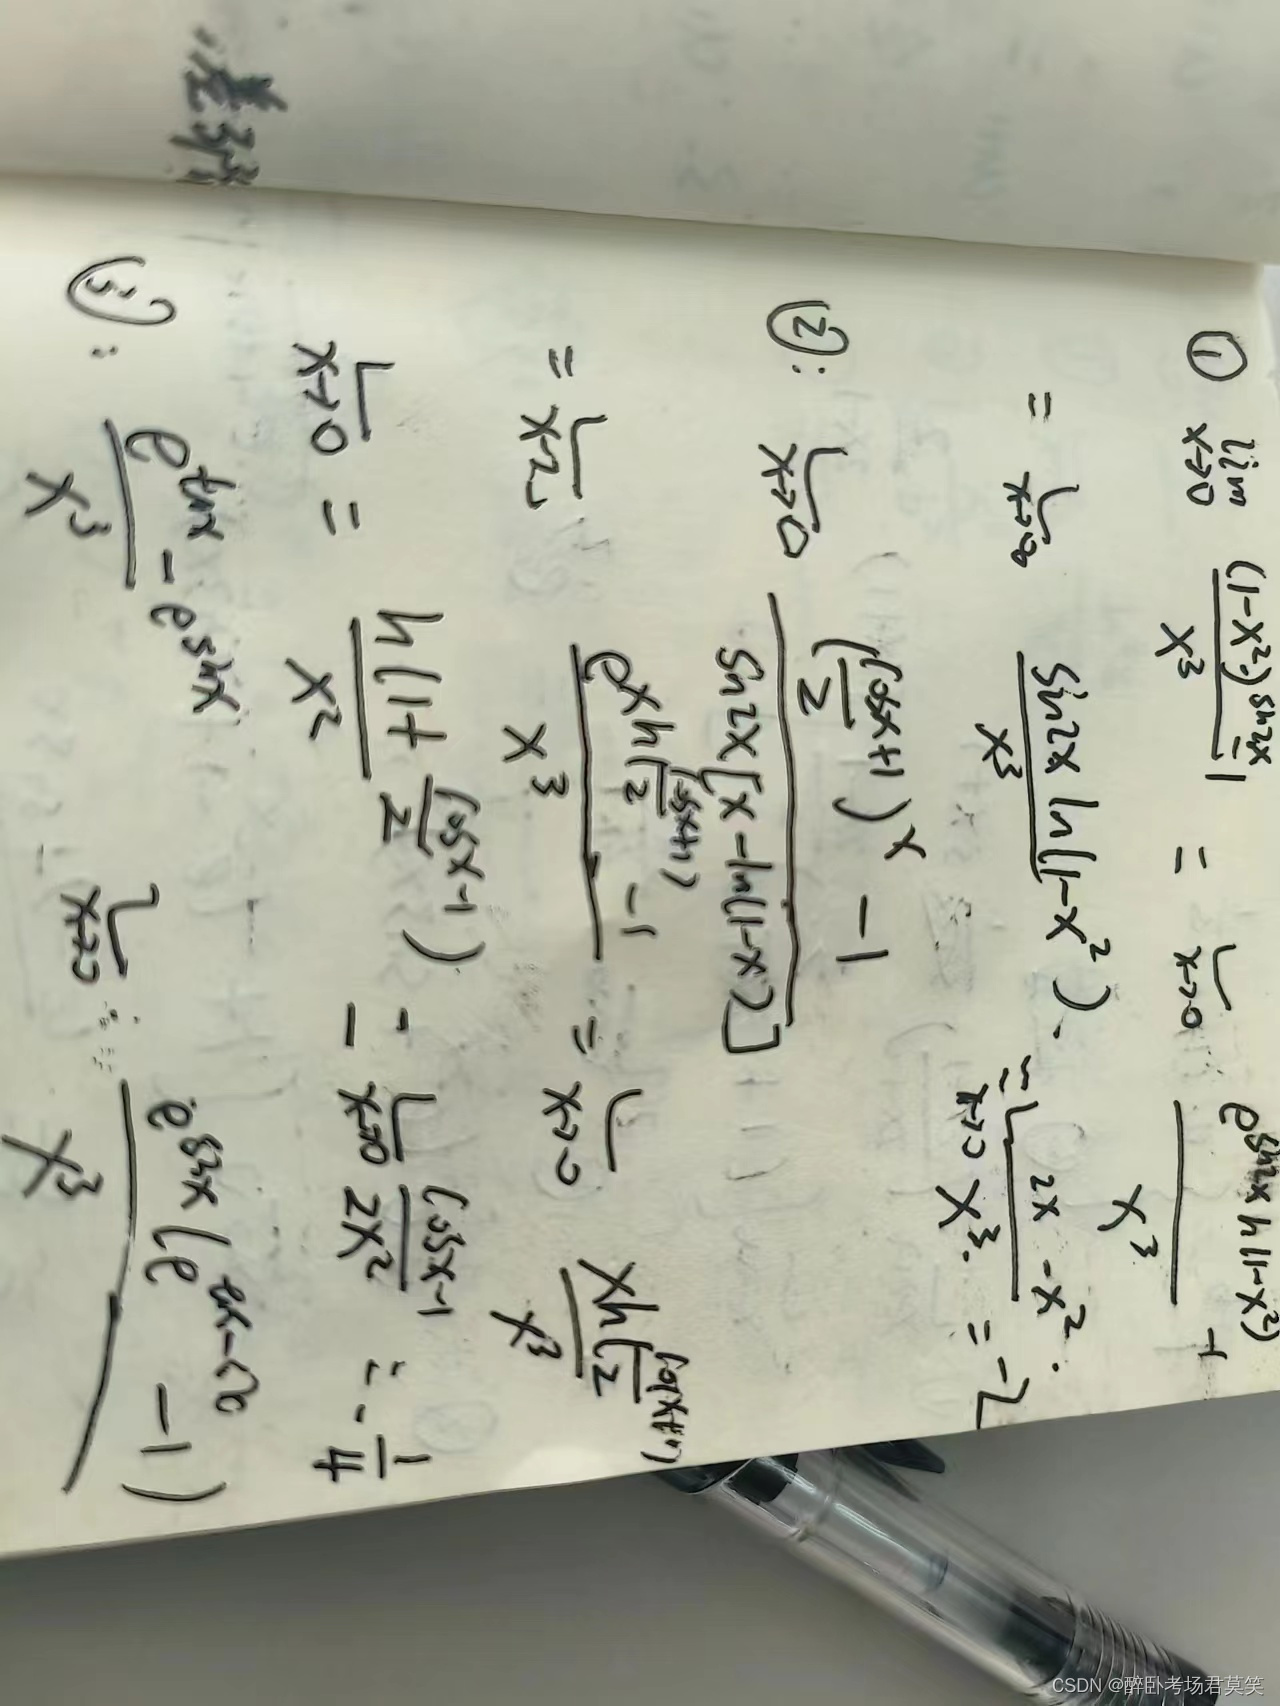 ① lim x→0 (1-x²)^sin2x -1 / x³ = L x→0 e^sin2x ln(1-x²) -1 / x³
= L x→0 sin2x ln(1-x²) / x³ = L x→0 2x·-x² / x³ = -2
②: L x→0 (cosx+1 / 2)^x -1 / sin2x[x-ln(1-x)]
= L x→0 e^xln(cosx+1 / 2) -1 / x³ = L x→0 xln(cosx+1 / 2) / x³
L x→0 = ln(1+ cosx-1 / 2) / x² = L x→0 cosx-1 / 2x² = -1/4
③: e^tanx - e^sinx / x³ L x→0 e^sinx (e^ -1) / x³
CSDN @醉卧考场君莫笑